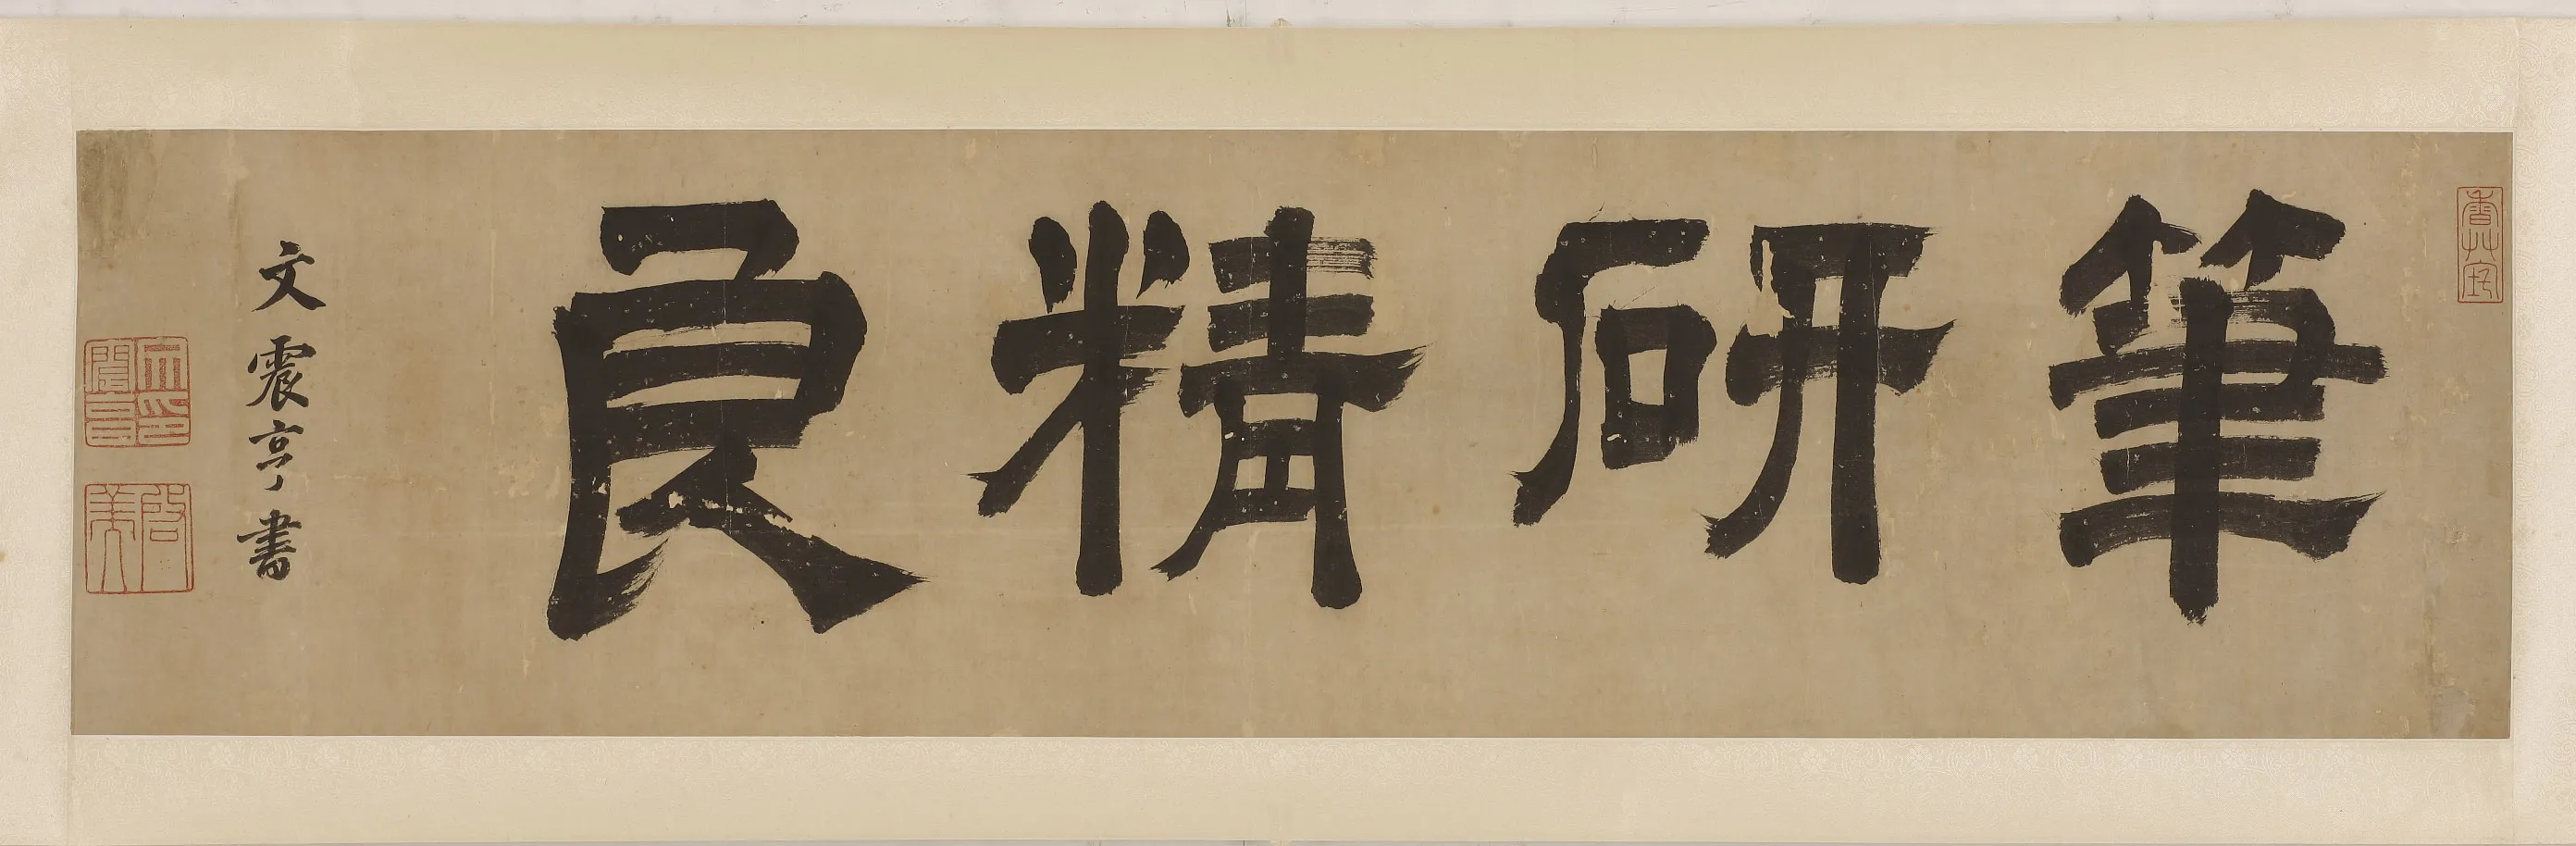 筆研精良
文震亨書
啓美